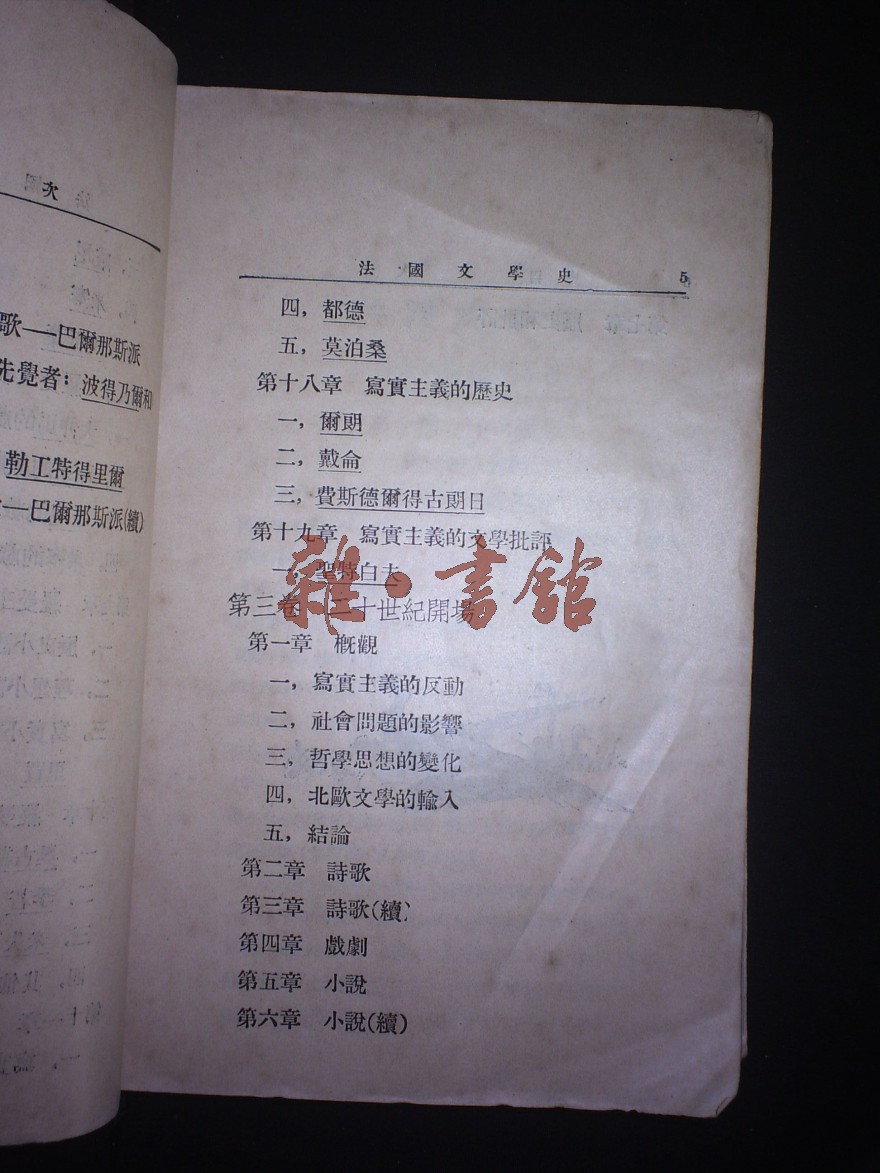 次
歌——巴爾那斯派
先覺者：波得乃爾和
勒工特得里爾
——巴爾那斯派(續)
法國文學史 5
四，都德
五，莫泊桑
第十八章 寫實主義的歷史
一，爾朗
二，戴侖
三，費斯德爾得古朗日
第十九章 寫實主義的文學批評
一，聖特白夫
第三卷 二十世紀開場
第一章 概觀
一，寫實主義的反動
二，社會問題的影響
三，哲學思想的變化
四，北歐文學的輸入
五，結論
第二章 詩歌
第三章 詩歌(續)
第四章 戲劇
第五章 小說
第六章 小說(續)
雜·書館